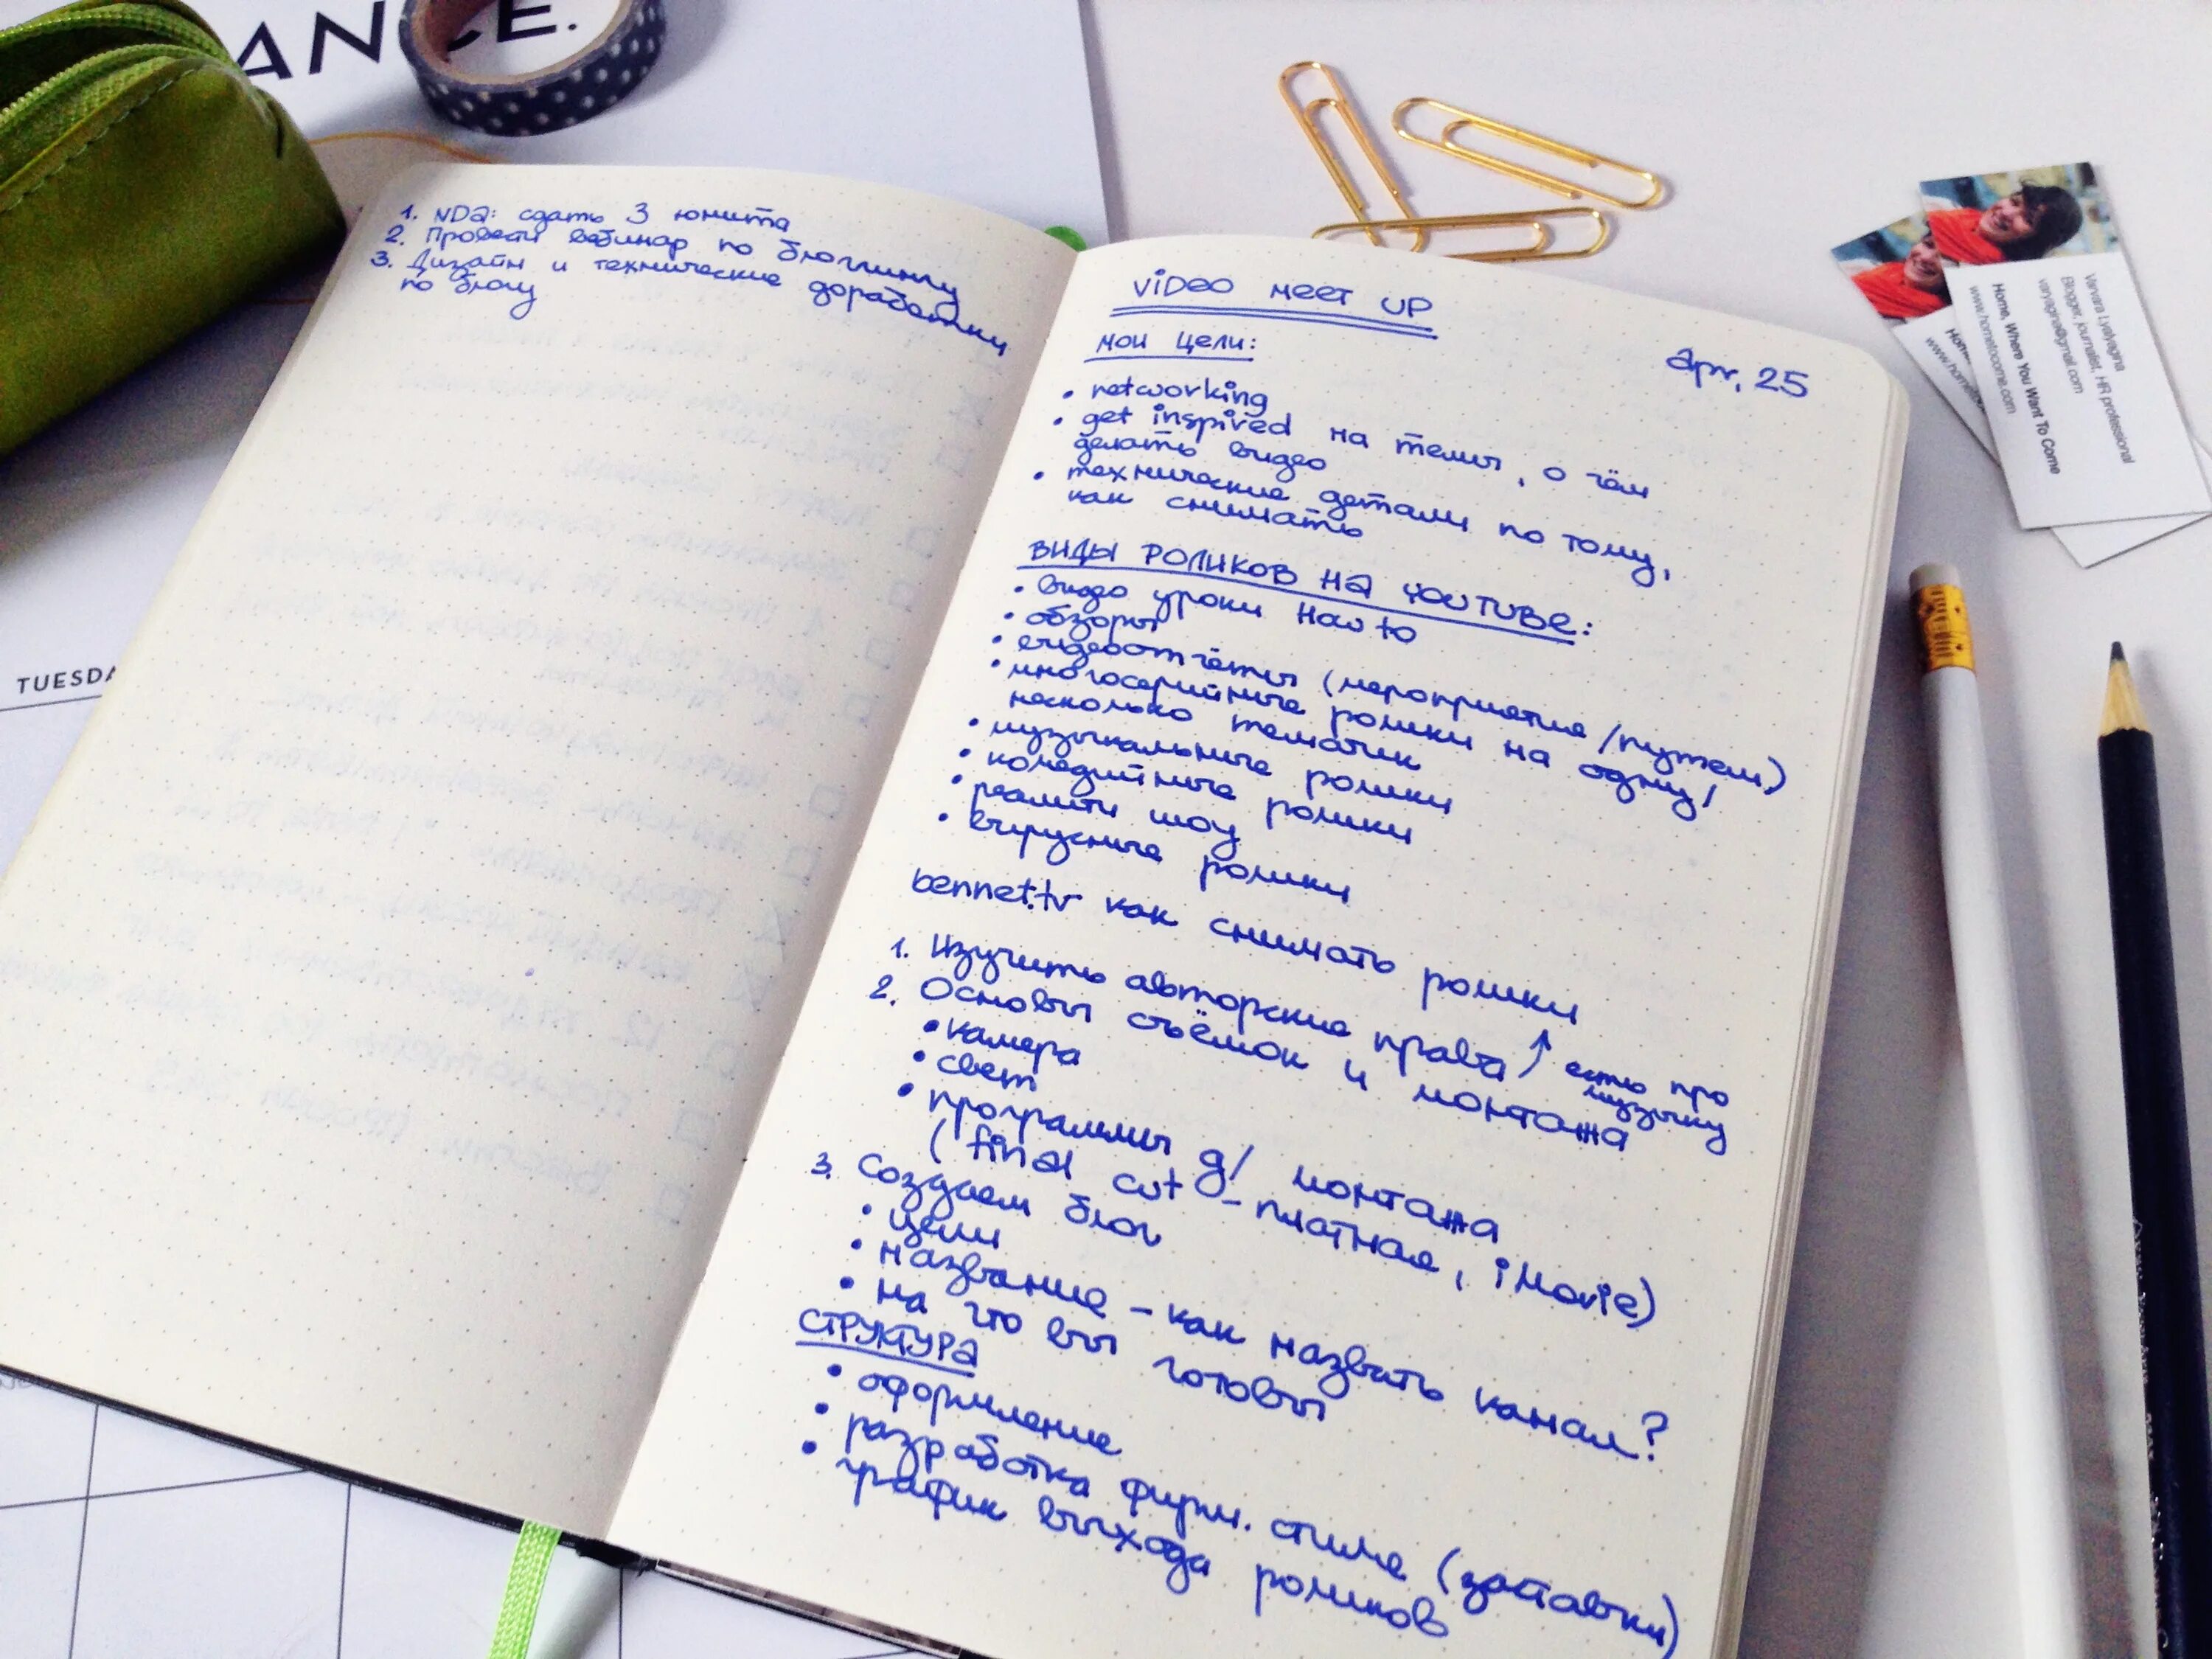 ANCE.
TUESDA
1. NDA: сдать 3 юнита
2. Провести вебинар по блоггингу
3. Дизайн и технические доработки
по блогу
VIDEO MEET UP
apr, 25
МОИ ЦЕЛИ:
• networking
• get inspired на темы, о чём
делать видео
• технические детали по тому,
как снимать
ВИДЫ РОЛИКОВ НА YOUTUBE:
• видео уроки How to
• обзоры
• видеоотчёты (мероприятие/путеш)
• многосерийные ролики на одну/
несколько тематик
• музыкальные ролики
• комедийные ролики
• реалити шоу
• вирусные ролики
bennet.tv как снимать ролики
1. Изучить авторские права) ↑ есть про
музыку
2. Основы съёмок и монтажа
• камера
• свет
• программы д/ монтажа
(final cut - платная, iMovie)
3. Создаем блог
• цели
• название - как назвать канал?
• на что вы готовы
СТРУКТУРА
• оформление
• разработка фирм. стиля (заставки)
• график выхода роликов
Varvara Lyalyagina
Blogger, journalist, HR professional
varyagina@gmail.com
Home, Where You Want To Come
www.hometocome.com